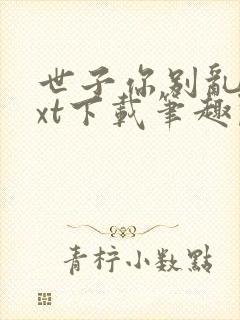 世子你别亂
xt下載筆趣
青柠小数點